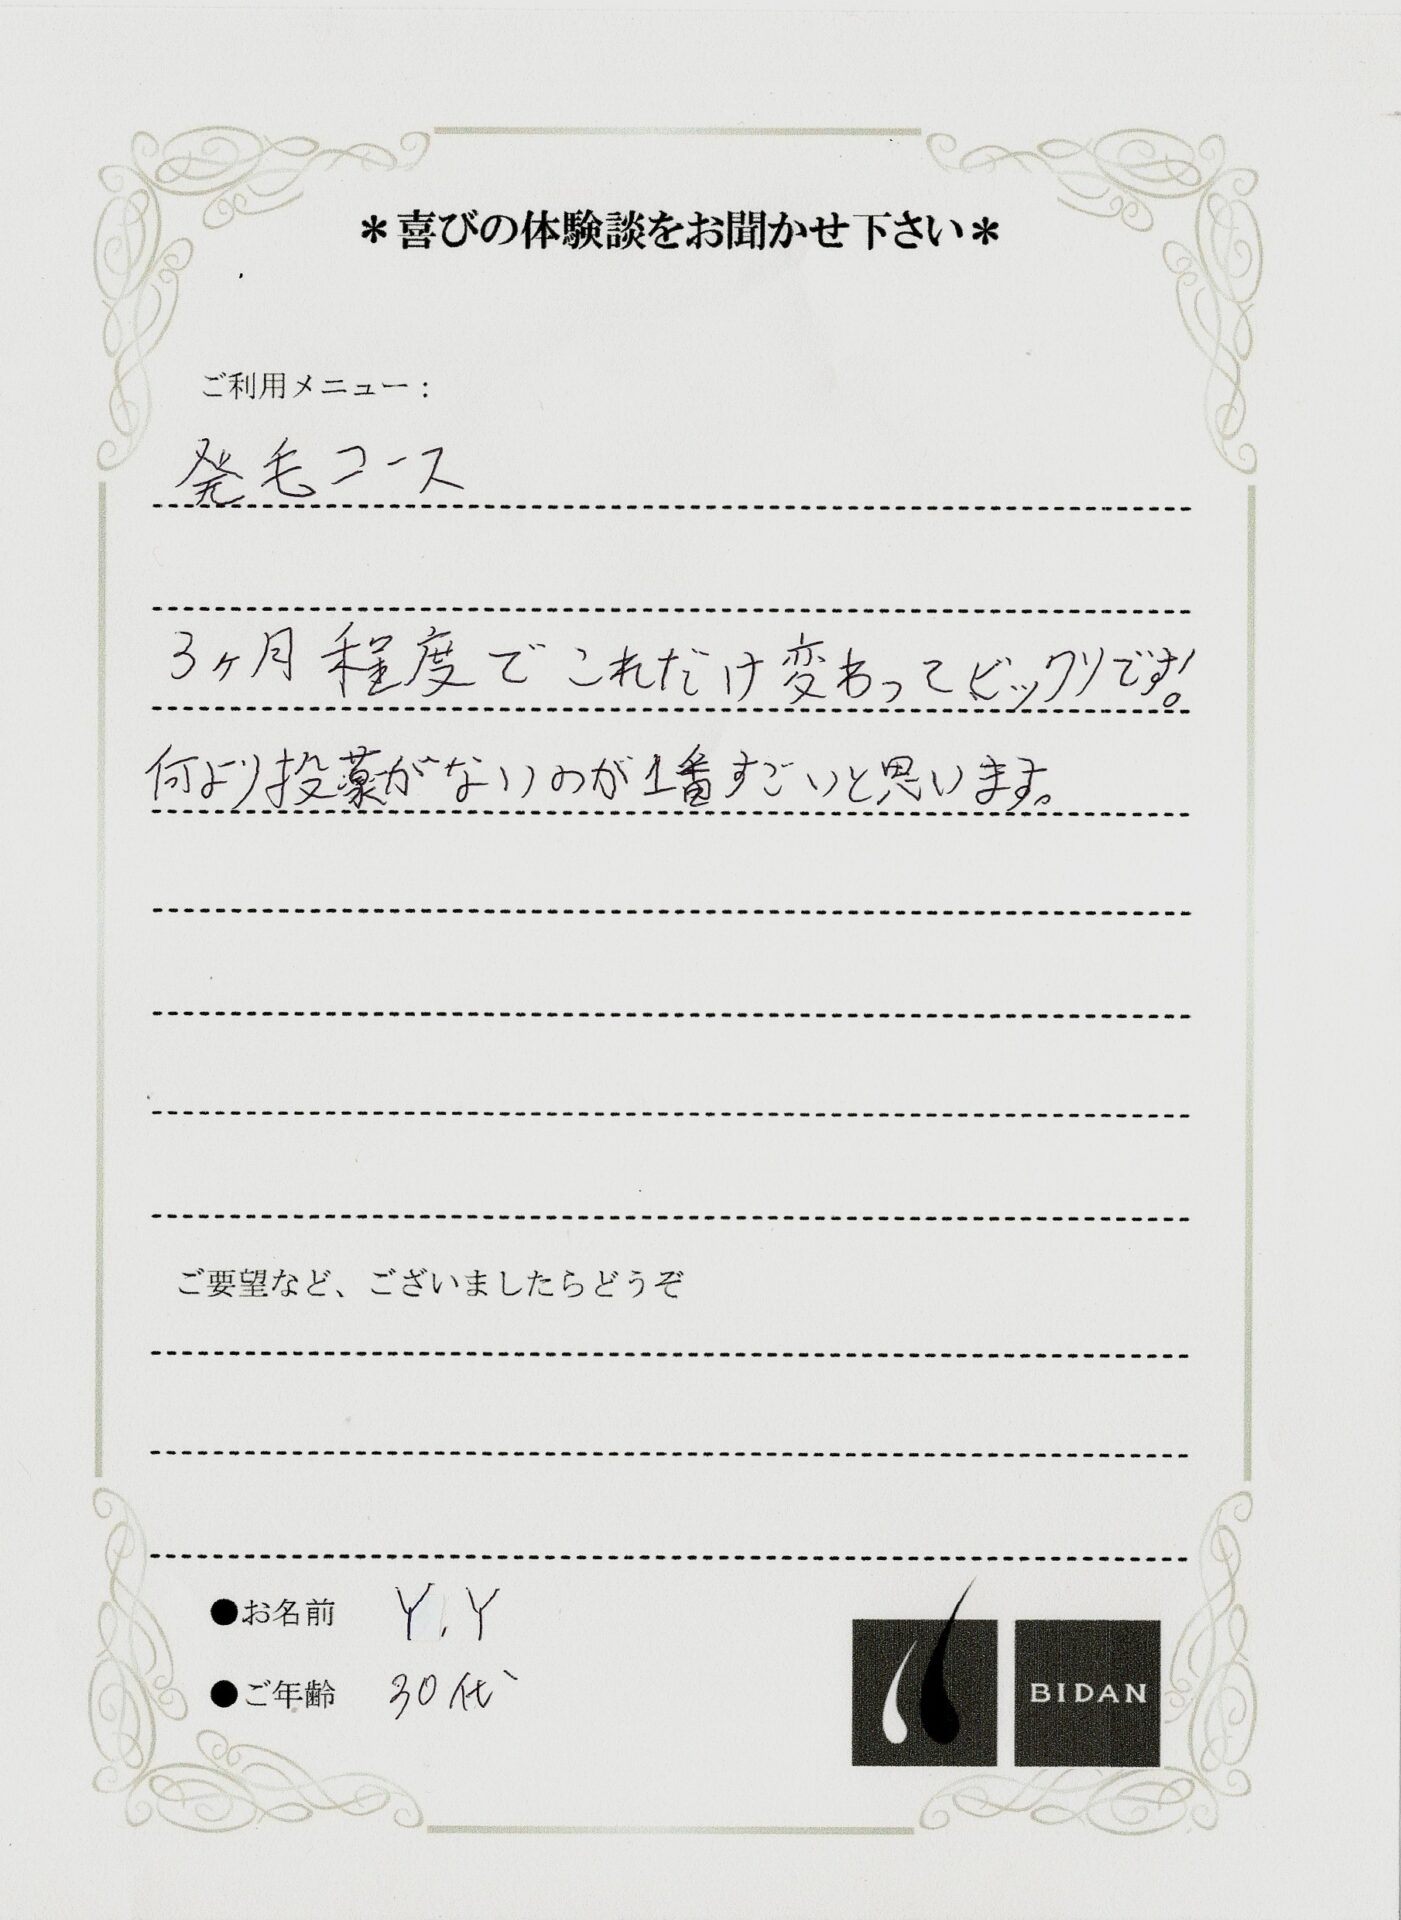 ＊喜びの体験談をお聞かせ下さい＊
ご利用メニュー：
発毛コース
3ヶ月程度でこれだけ変わってビックリです！。
何より投薬がないのが1番すごいと思います。
ご要望など、ございましたらどうぞ
●お名前 Y.Y
●ご年齢 30代
BIDAN